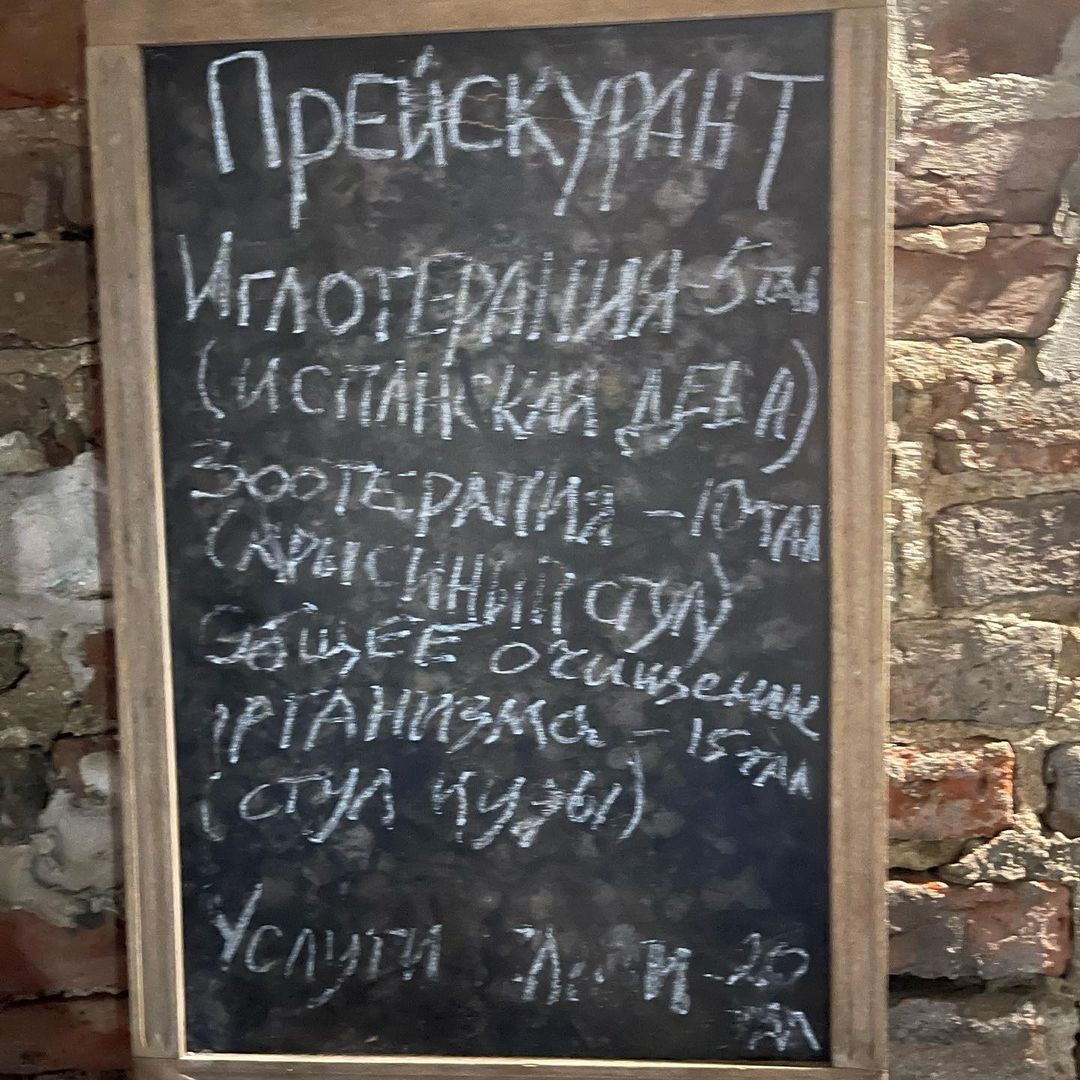 ПРЕЙСКУРАНТ
ИГЛОТЕРАПИЯ-5 ТАЛ
(ИСПАНСКАЯ ДЕВА)
ЗООТЕРАПИЯ -10 ТАЛ
(КРЫСИНЫЙ СТУЛ)
ОБЩЕЕ очищение
ОРГАНИЗМА - 15 ТАЛ
(СТУЛ ИУДЫ)
УСЛУГИ -20
ТАЛ